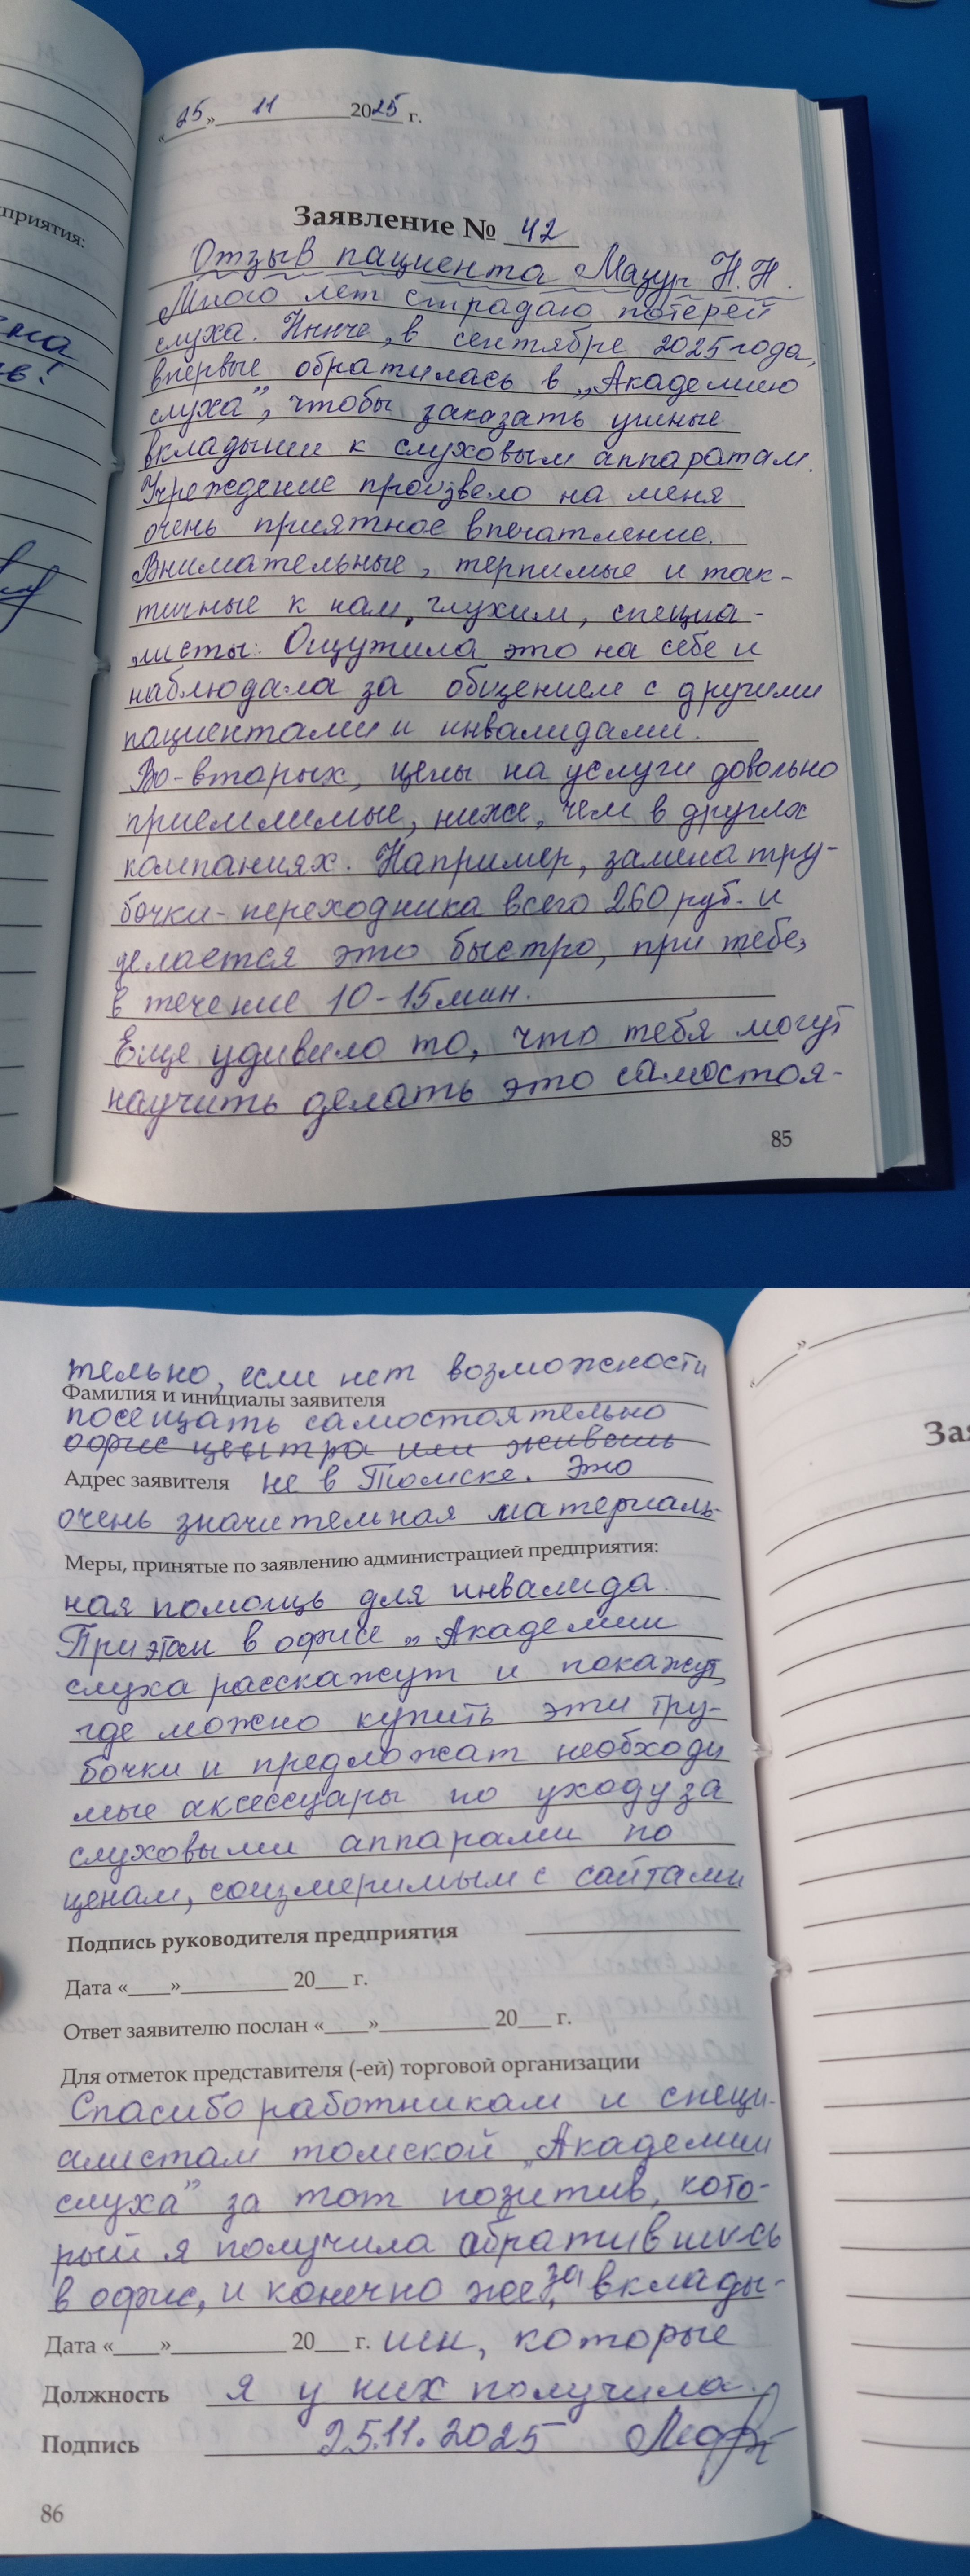 «25» 11 2025 г.
Заявление № 42
Отзыв пациента Мазур Н.Н.
Много лет страдаю потерей
слуха. Нынче, в сентябре 2025 года,
впервые обратилась в „Академию
слуха”, чтобы заказать ушные
вкладыши к слуховым аппаратам.
Учреждение произвело на меня
очень приятное впечатление.
Внимательные, терпимые и так-
тичные к нам, глухим, специа-
листы. Ощутила это на себе и
наблюдала за общением с другими
пациентами и инвалидами.
Во-вторых, цены на услуги довольно
приемлимые, ниже, чем в других
компаниях. Например, замена тру-
бочки-переходника всего 260 руб. и
делается это быстро, при тебе,
в течение 10-15 мин.
Еще удивило то, что тебя могут
научить делать это самостоя-
85
приятия:
тельно, если нет возможности
Фамилия и инициалы заявителя
посещать самостоятельно
офис центра или живешь
Адрес заявителя не в Томске. Это
очень значительная материаль-
Меры, принятые по заявлению администрацией предприятия:
ная помощь для инвалида.
При этом в офисе „Академии
слуха расскажут и покажут,
где можно купить эти тру-
бочки и предложат необходи
мые аксессуары по уходу за
слуховыми аппарами по
ценам, соизмеримым с сайтами
Подпись руководителя предприятия
Дата «____»__________ 20___ г.
Ответ заявителю послан «____»__________ 20___ г.
Для отметок представителя (-ей) торговой организации
Спасибо работникам и специ-
алистам томской „Академии
слуха” за тот позитив, кото-
рый я получила обратившись
в офис, и конечно же, за вклады-
Дата «____»__________ 20___ г. ши, которые
Должность я у них получила.
Подпись 25.11.2025
86
За